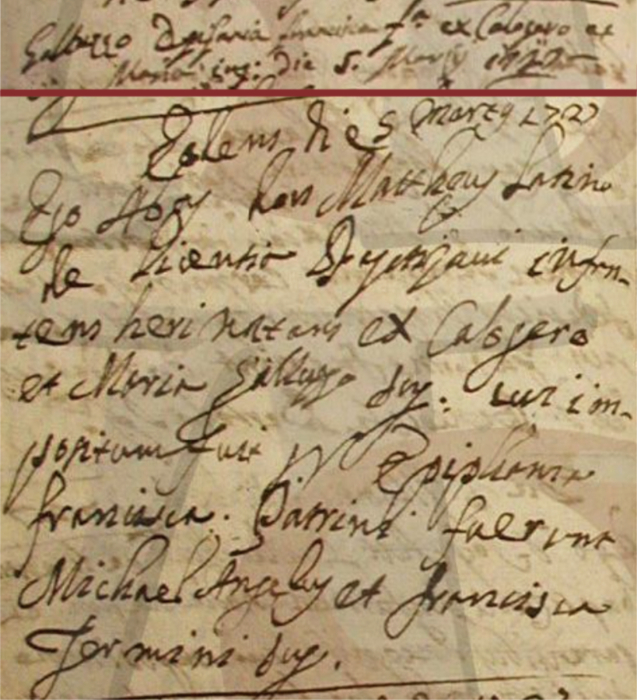 Galluzzo Epifania francisca fa. ex Calogero et
Maria iug: die 5. Martij 1727
Eodem die 5 Martij 1727
Ego Don Mattheus Latino
de licentia Baptizavi infan-
tem heri natam ex Calogero
et Maria Galluzzo iug: cui im-
positum fuit Epiphania
francisca. Patrini fuerunt
Michael Angelus et francisca
Termini iug.